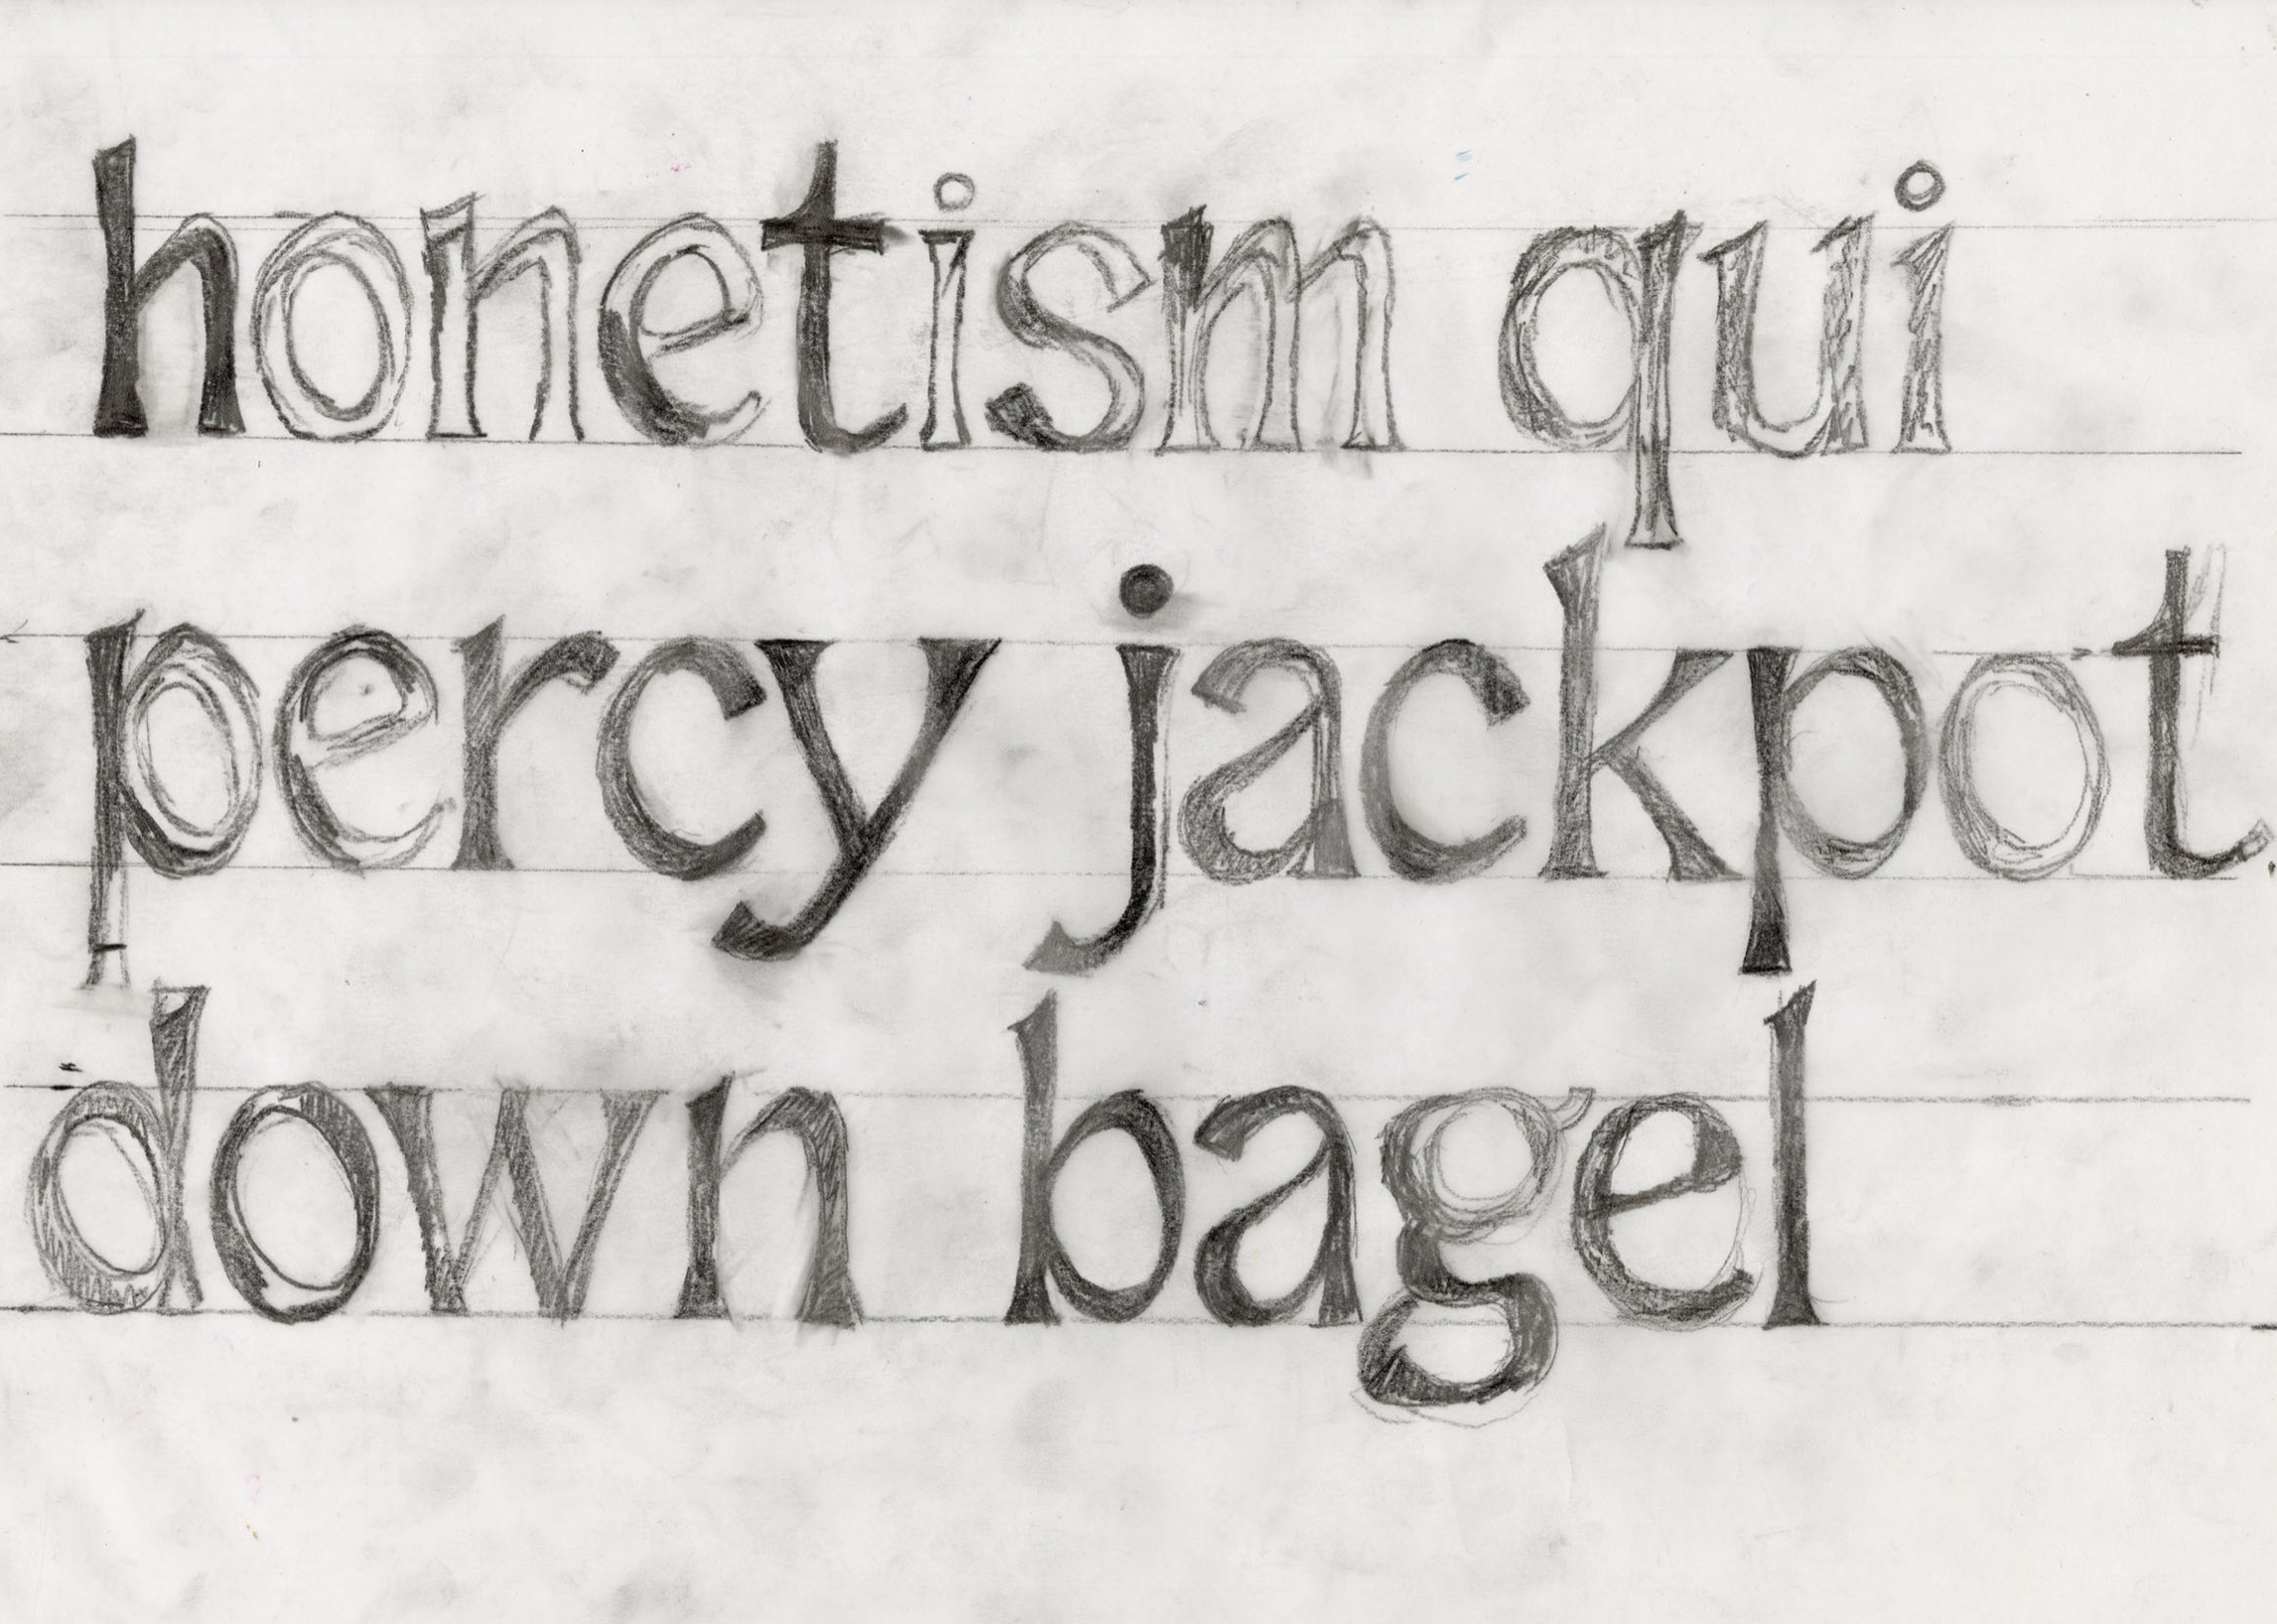 honetism qui
percy jackpot
down bagel